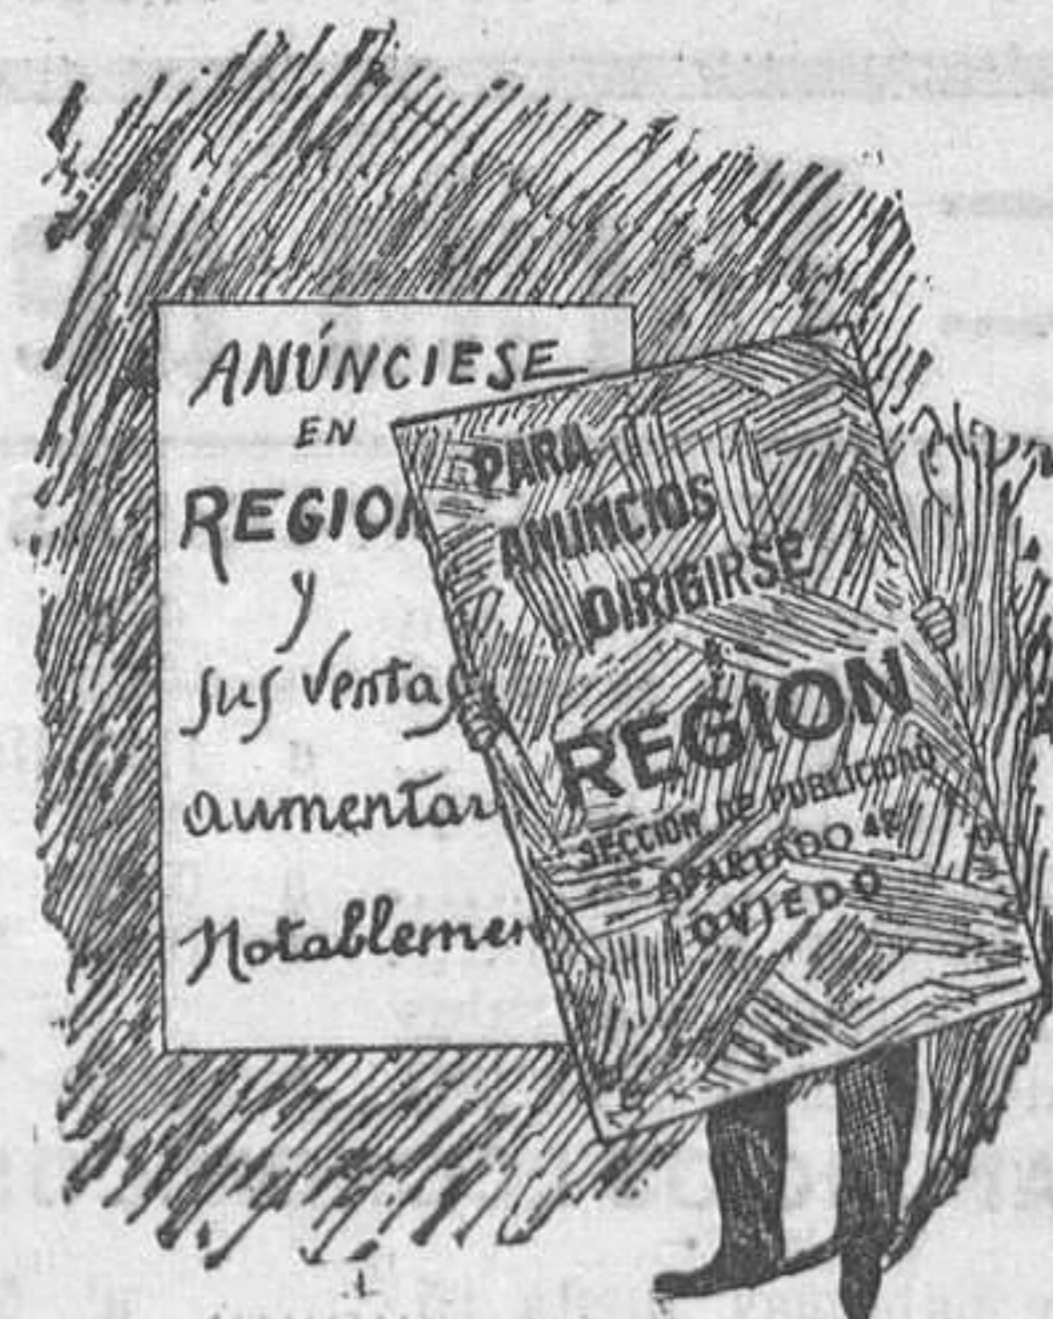 ANÚNCIESE
EN
REGION
y
sus ventas
aumentar
Notablemen
PARA
ANUNCIOS
DIRIGIRSE
Á
REGION
SECCION DE PUBLICIDAD
APARTADO 42
OVIEDO